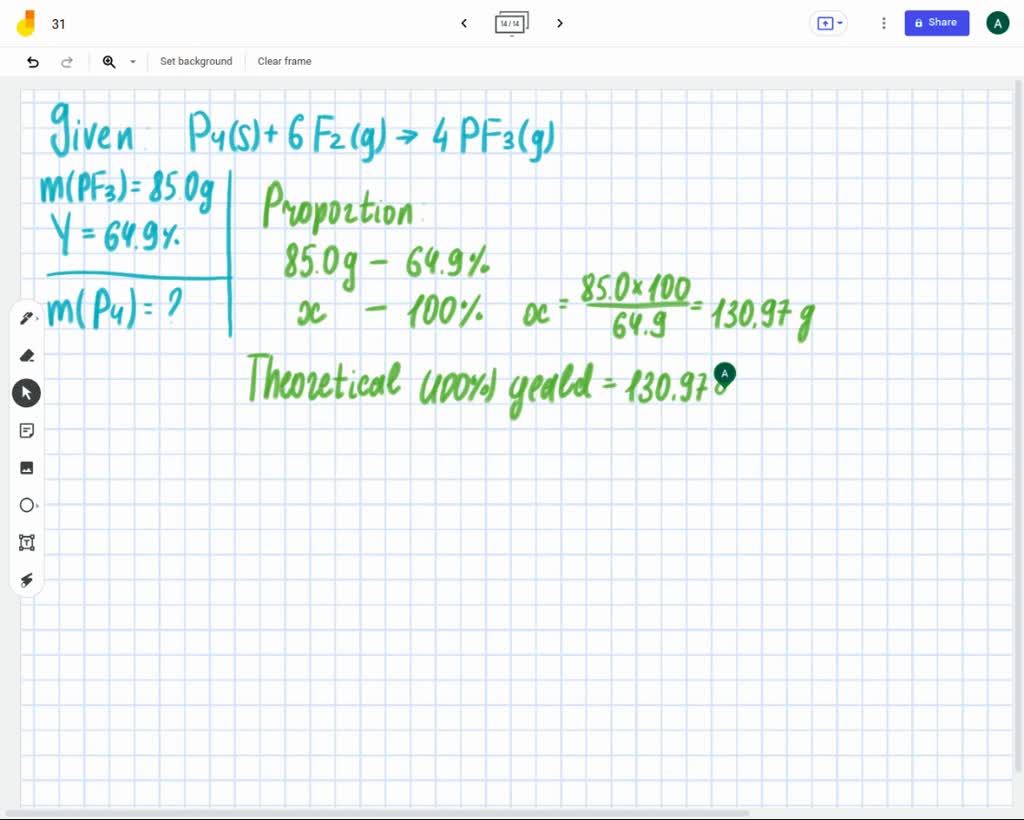 31
14 / 14
Share
A
Set background
Clear frame
Given: P4(s) + 6 F2(g) → 4 PF3(g)
m(PF3) = 85.0g
Y = 64.9%
m(P4) = ?
Proportion:
85.0g – 64.9%
x – 100% x = 85.0 × 100 / 64.9 = 130.97 g
Theoretical (100%) yeald = 130.97
A